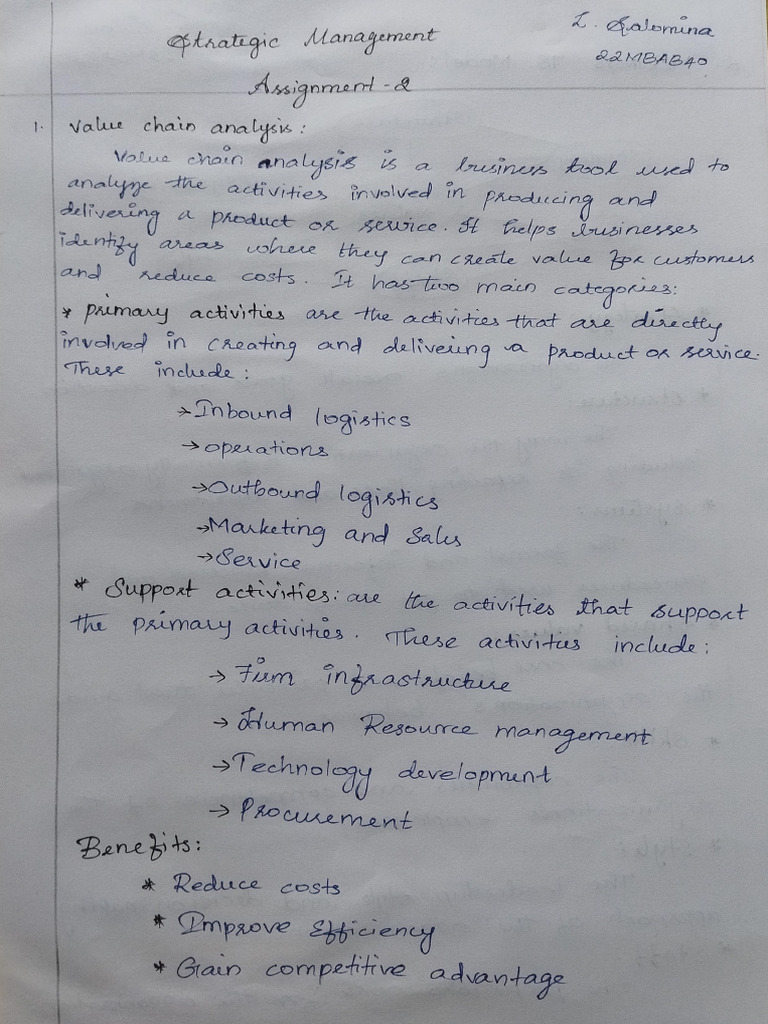 Strategic Management
Z. Salomina
22MBAB40
Assignment-2
1. Value chain analysis:
Value chain analysis is a business tool used to
analyze the activities involved in producing and
delivering a product or service. It helps businesses
identify areas where they can create value for customers
and reduce costs. It has two main categories:
* primary activities are the activities that are directly
involved in creating and delivering a product or service.
These include:
→Inbound logistics
→operations
→Outbound logistics
→Marketing and Sales
→Service
* Support activities: are the activities that support
the primary activities. These activities include:
→ Firm infrastructure
→ Human Resource management
→Technology development
→ Procurement
Benefits:
* Reduce costs
* Improve Efficiency
* Gain competitive advantage